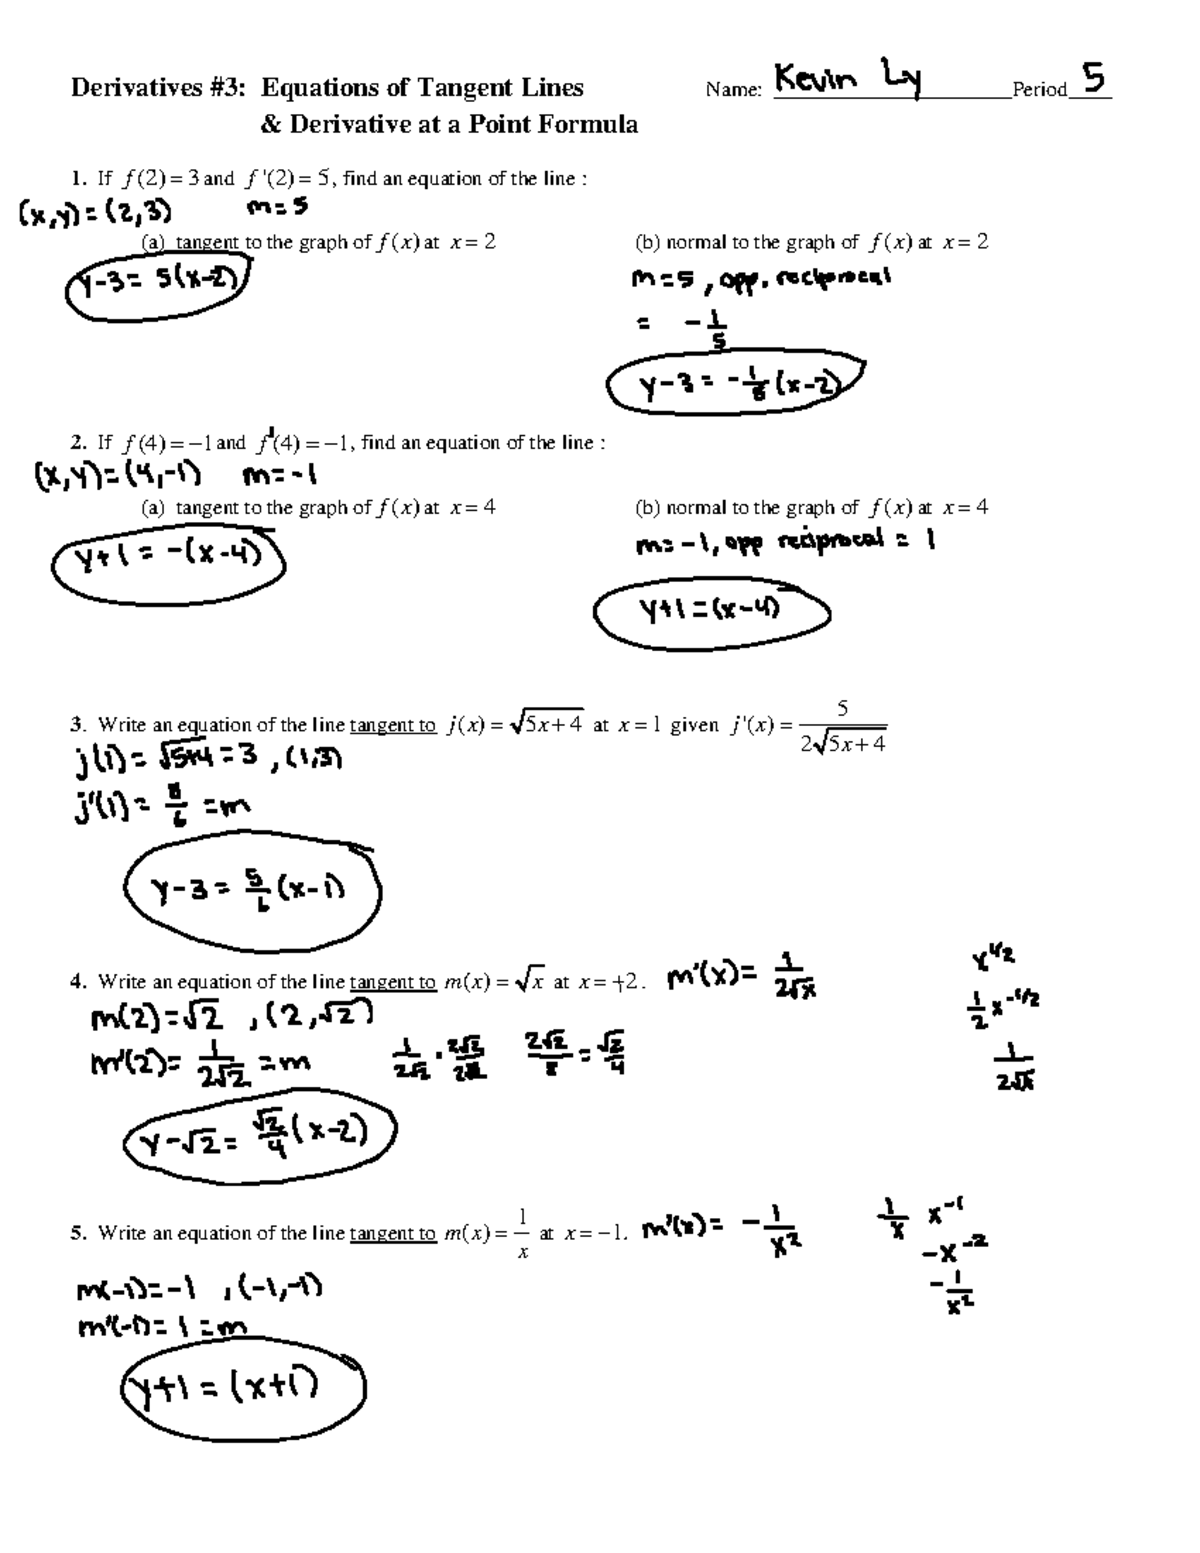 Derivatives #3: Equations of Tangent Lines Name: Kevin Ly Period 5
& Derivative at a Point Formula
1. If f(2) = 3 and f'(2) = 5, find an equation of the line :
(x,y)=(2,3) m=5
(a) tangent to the graph of f(x) at x = 2 (b) normal to the graph of f(x) at x = 2
y-3= 5(x-2) m=5, opp. reciprocal
= -1/5
y-3= -1/5(x-2)
2. If f(4) = −1 and f'(4) = −1, find an equation of the line :
(x,y)=(4,-1) m=-1
(a) tangent to the graph of f(x) at x = 4 (b) normal to the graph of f(x) at x = 4
y+1=-(x-4) m=-1, opp reciprocal = 1
y+1=(x-4)
3. Write an equation of the line tangent to j(x) = √5x+4 at x = 1 given j'(x) = 5/2√5x+4
j(1)=√5+4=3, (1,3)
j'(1)= 5/6 =m
y-3= 5/6(x-1)
4. Write an equation of the line tangent to m(x) = √x at x = +2. m'(x)= 1/2√x x^1/2
m(2)=√2, (2,√2) 1/2x^-1/2
m'(2)= 1/2√2 =m 1/2√2 · 2√2/2√2 2√2/8=√2/4 1/2√x
y-√2= √2/4(x-2)
5. Write an equation of the line tangent to m(x) = 1/x at x = −1. m'(x)= -1/x² 1/x x^-1
-x^-2
m(-1)=-1, (-1,-1) -1/x²
m'(-1)=1=m
y+1=(x+1)